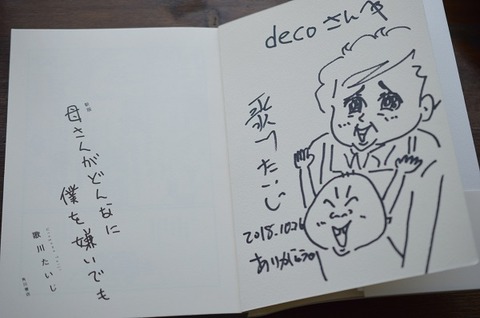 新版
母さんがどんなに
僕を嫌いでも
歌川たいじ
decoさんへ
歌川たいじ
2018.10.26
ありがとう